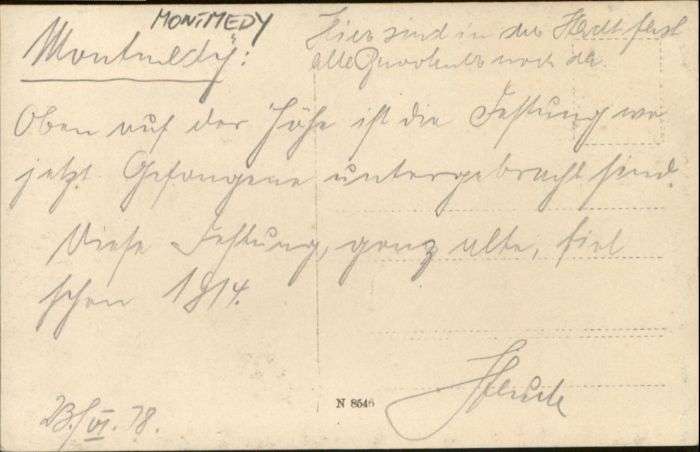 MONTMEDY
Montmedÿ:
Hier sind in der Stadt fast
alle Bewohner noch da.
Oben auf der Höhe ist die Festung wo
jetzt Gefangene untergebracht sind.
Diese Festung, ganz alte, fiel
schon 1914.
23./VI. 18.
N 8546